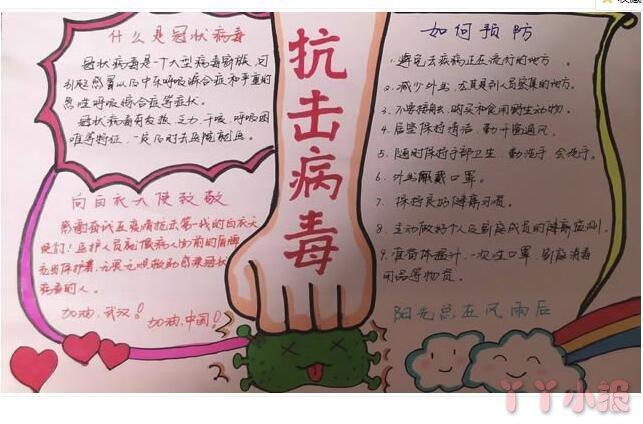 什么是冠状病毒
冠状病毒是一个大型病毒家族，可
引起感冒以及中东呼吸综合症和严重的
急性呼吸综合症等症状。
冠状病毒有发热、乏力、干咳、呼吸困
难等特征，一旦及时去医院就医。
向白衣天使致敬
感谢奋战在疫情抗击第一线的白衣天
使们！医护人员就像病人面前的盾牌
病毒的人。
加油，武汉！ 加油，中国！
抗击病毒
如何预防
1、避免去疾病正在流行的地方。
2、减少外出，尤其是到人员密集的地方。
3、不要接触、购买和食用野生动物。
4、居室保持清洁，勤开窗通风。
5、随时保持手部卫生，勤洗手、会洗手。
6、外出佩戴口罩。
7、保持良好健康习惯。
8、主动做好个人及家庭成员的健康监测。
9、准备体温计、一次性口罩、家庭消毒
用品等物资。
阳光总在风雨后
丫丫小报